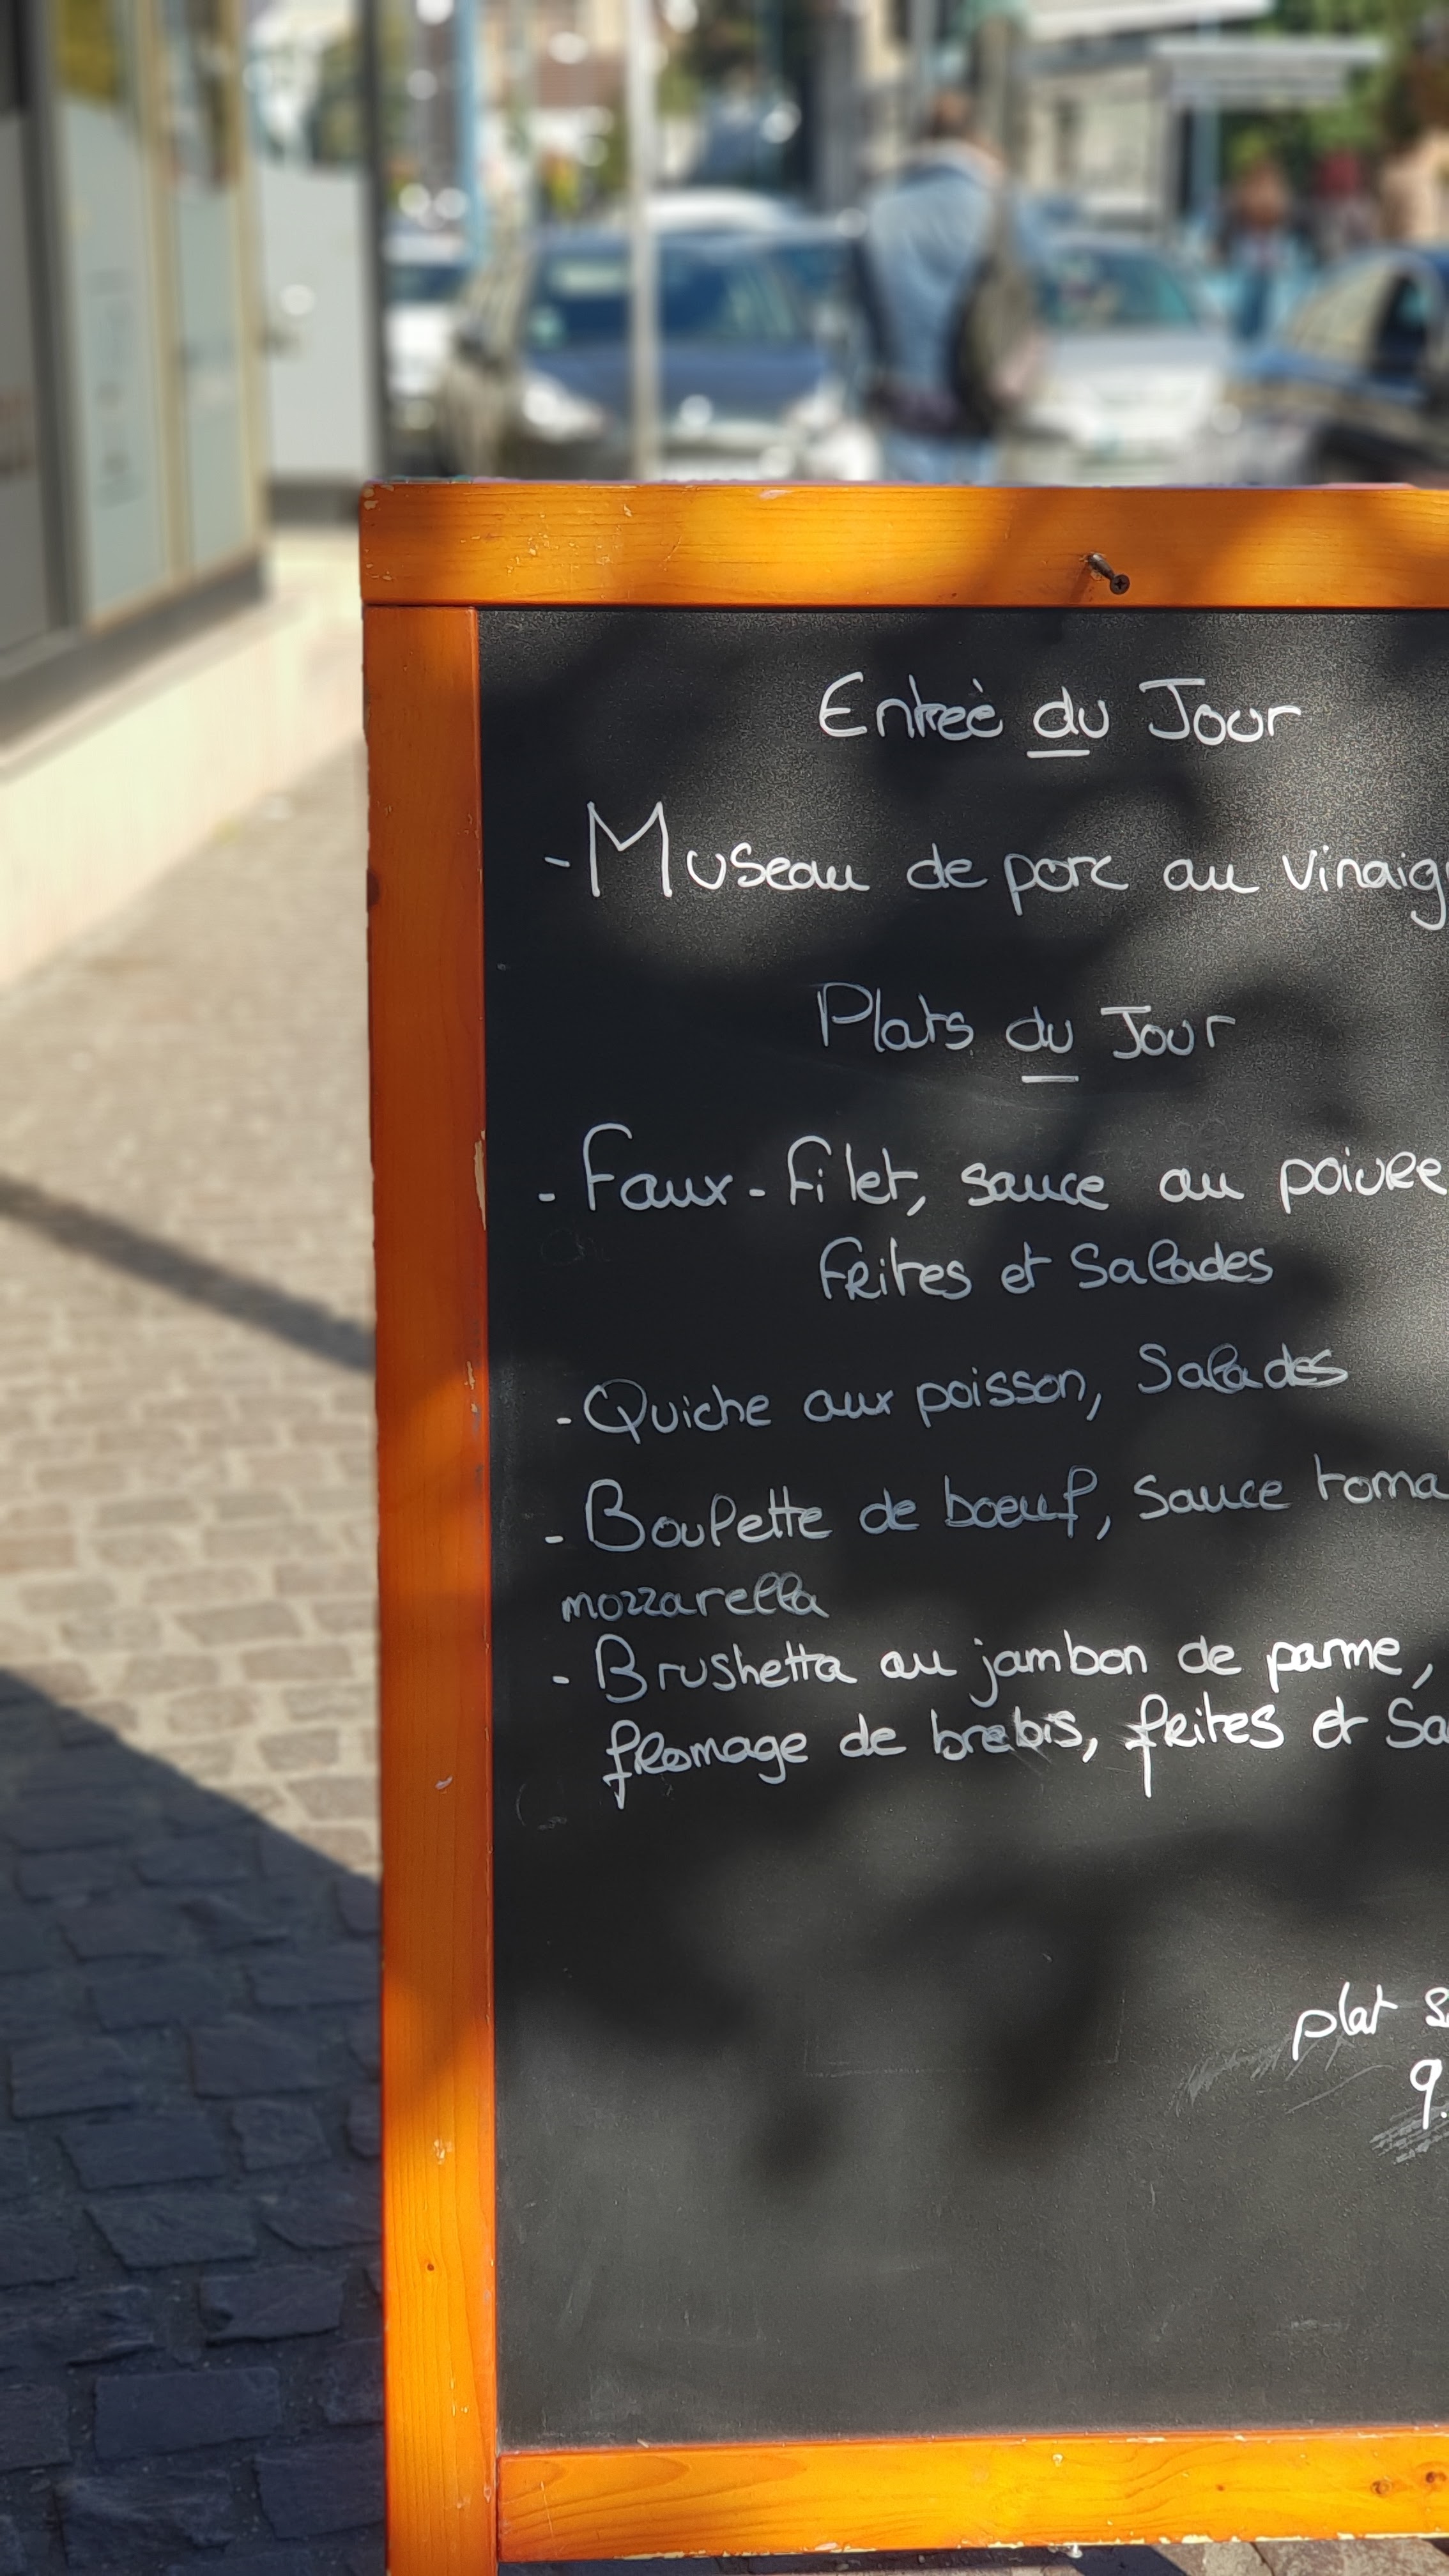 Entreè du Jour
- Museau de porc au vinaig
Plats du Jour
- Faux-filet, sauce au poivre
frites et Salades
- Quiche aux poisson, Salades
- Boulette de boeuf, Sauce toma
mozzarella
- Brushetta au jambon de parme,
fromage de brebis, frites et Sa
plat s
9.